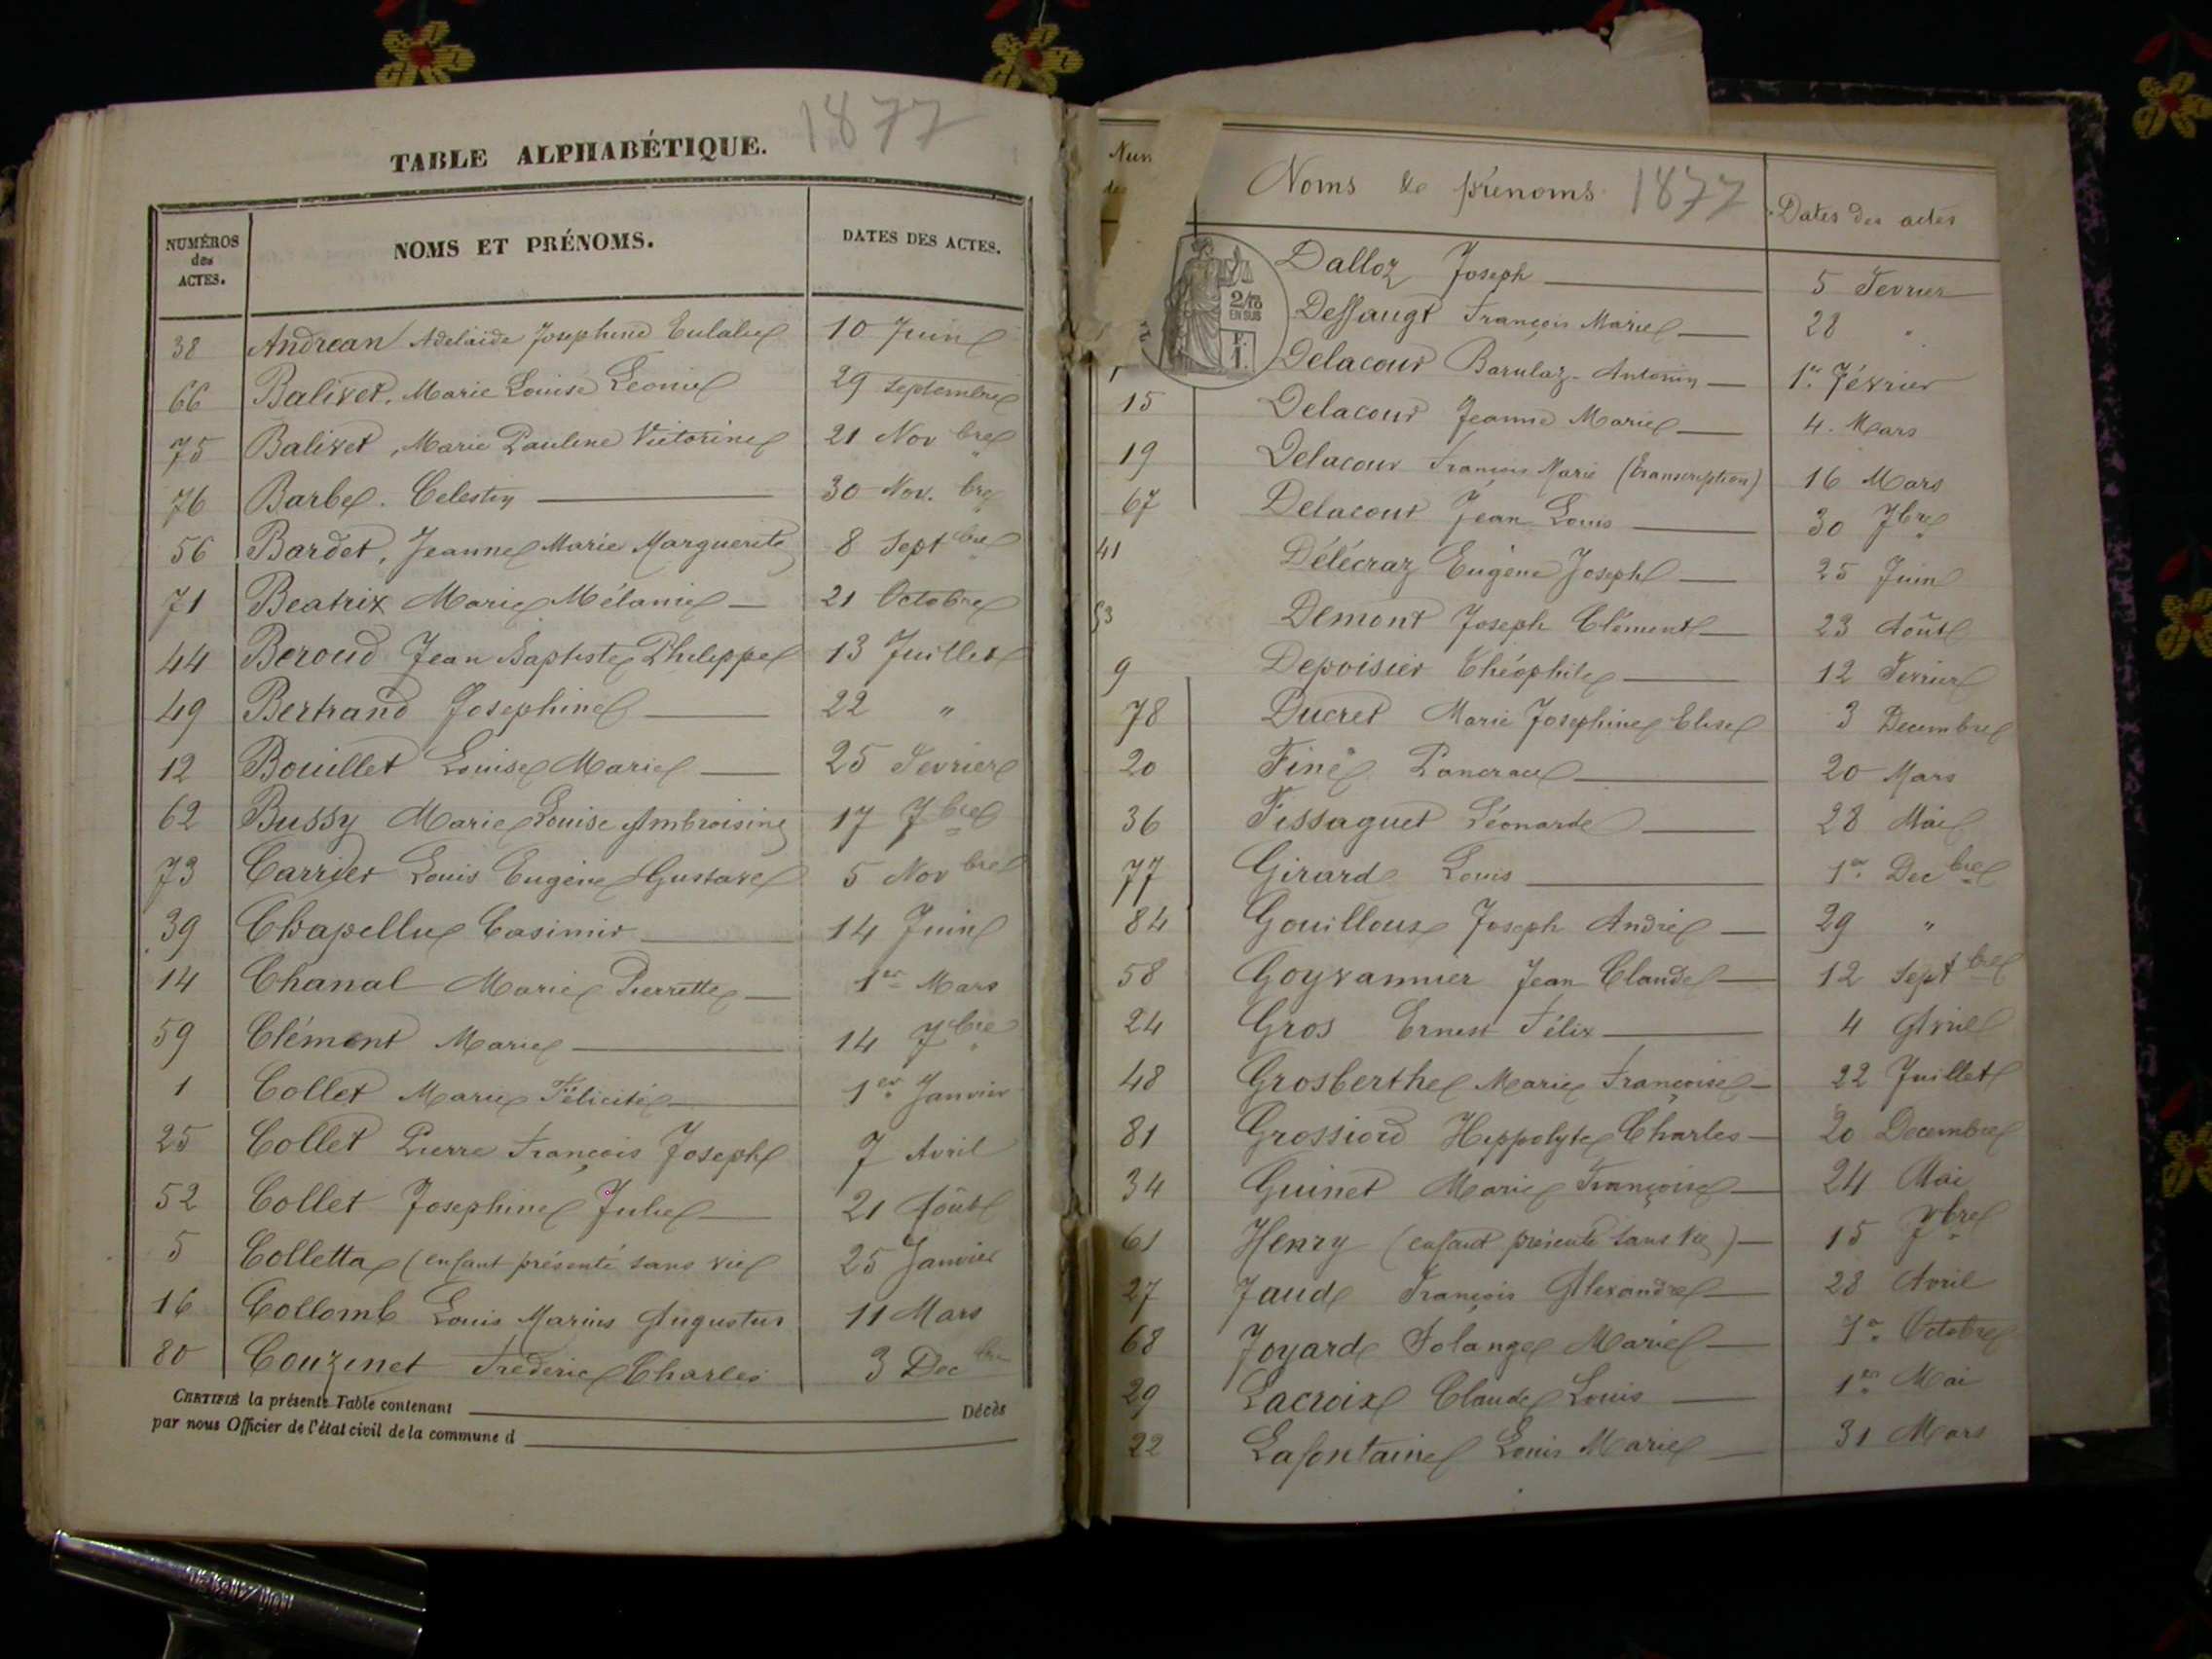 TABLE ALPHABÉTIQUE. 1877
NUMÉROS des ACTES. NOMS ET PRÉNOMS. DATES DES ACTES.
38 Andrean Adelaide Josephine Eulalie 10 Juin
66 Balivet, Marie Louise Leonie 29 Septembre
75 Balivet, Marie Pauline Victorine 21 Nov bre
76 Barbe. Celestin 30 Nov. bre
56 Bardet, Jeanne Marie Marguerite 8 Sept bre
71 Beatrix Marie Mélanie 21 Octobre
44 Beroud Jean Baptiste Philippe 13 Juillet
49 Bertrand Josephine 22 "
12 Bouillet Louise Marie 25 Fevrier
62 Bussy Marie Louise Ambroisine 17 7bre
73 Carrier Louis Eugène Gustave 5 Nov bre
39 Chapellu Casimir 14 Juin
14 Chanal Marie Pierrette 1er Mars
59 Clément Marie 14 7bre
1 Collet Marie Félicité 1er Janvier
25 Collet Pierre François Joseph 7 Avril
52 Collet Josephine Julie 21 Août
5 Colletta (enfant présenté sans vie 25 Janvier
16 Collomb Louis Marius Augustus 11 Mars
80 Couzinet Frederic Charles 3 Dec bre
CERTIFIÉ la présente Table contenant Décès
par nous Officier de l'état civil de la commune d
Num des Noms & prénoms 1877 Dates des actes
Dalloz Joseph 5 Fevrier
2/10 EN SUS
Dessaugt François Marie 28 "
F. 1.
Delacour Barulaz - Antonin 1er Février
15 Delacour Jeanne Marie 4. Mars
19 Delacour François Marie (transcription) 16 Mars
67 Delacour Jean Louis 30 7bre
41 Délécraz Eugène Joseph 25 Juin
53 Demont Joseph Clément 23 Août
9 Depoisier Théophile 12 Fevrier
78 Ducret Marie Josephine Elise 3 Decembre
20 Finé Pancrace 20 Mars
36 Fissaguet Léonarde 28 Mai
77 Girard Louis 1er Dec bre
84 Gouilloux Joseph André 29 "
58 Goyvannier Jean Claude 12 Sept bre
24 Gros Ernest Félix 4 Avril
48 Grosberthe Marie Françoise 22 Juillet
81 Grossiord Hippolyte Charles 20 Decembre
34 Guinet Marie Françoise 24 Mai
61 Henry (enfant présenté sans vie) 15 7bre
27 Jaud François Alexandre 28 Avril
68 Joyard Solange Marie 1er Octobre
29 Lacroix Claude Louis 1er Mai
22 Lafontaine Louis Marie 31 Mars